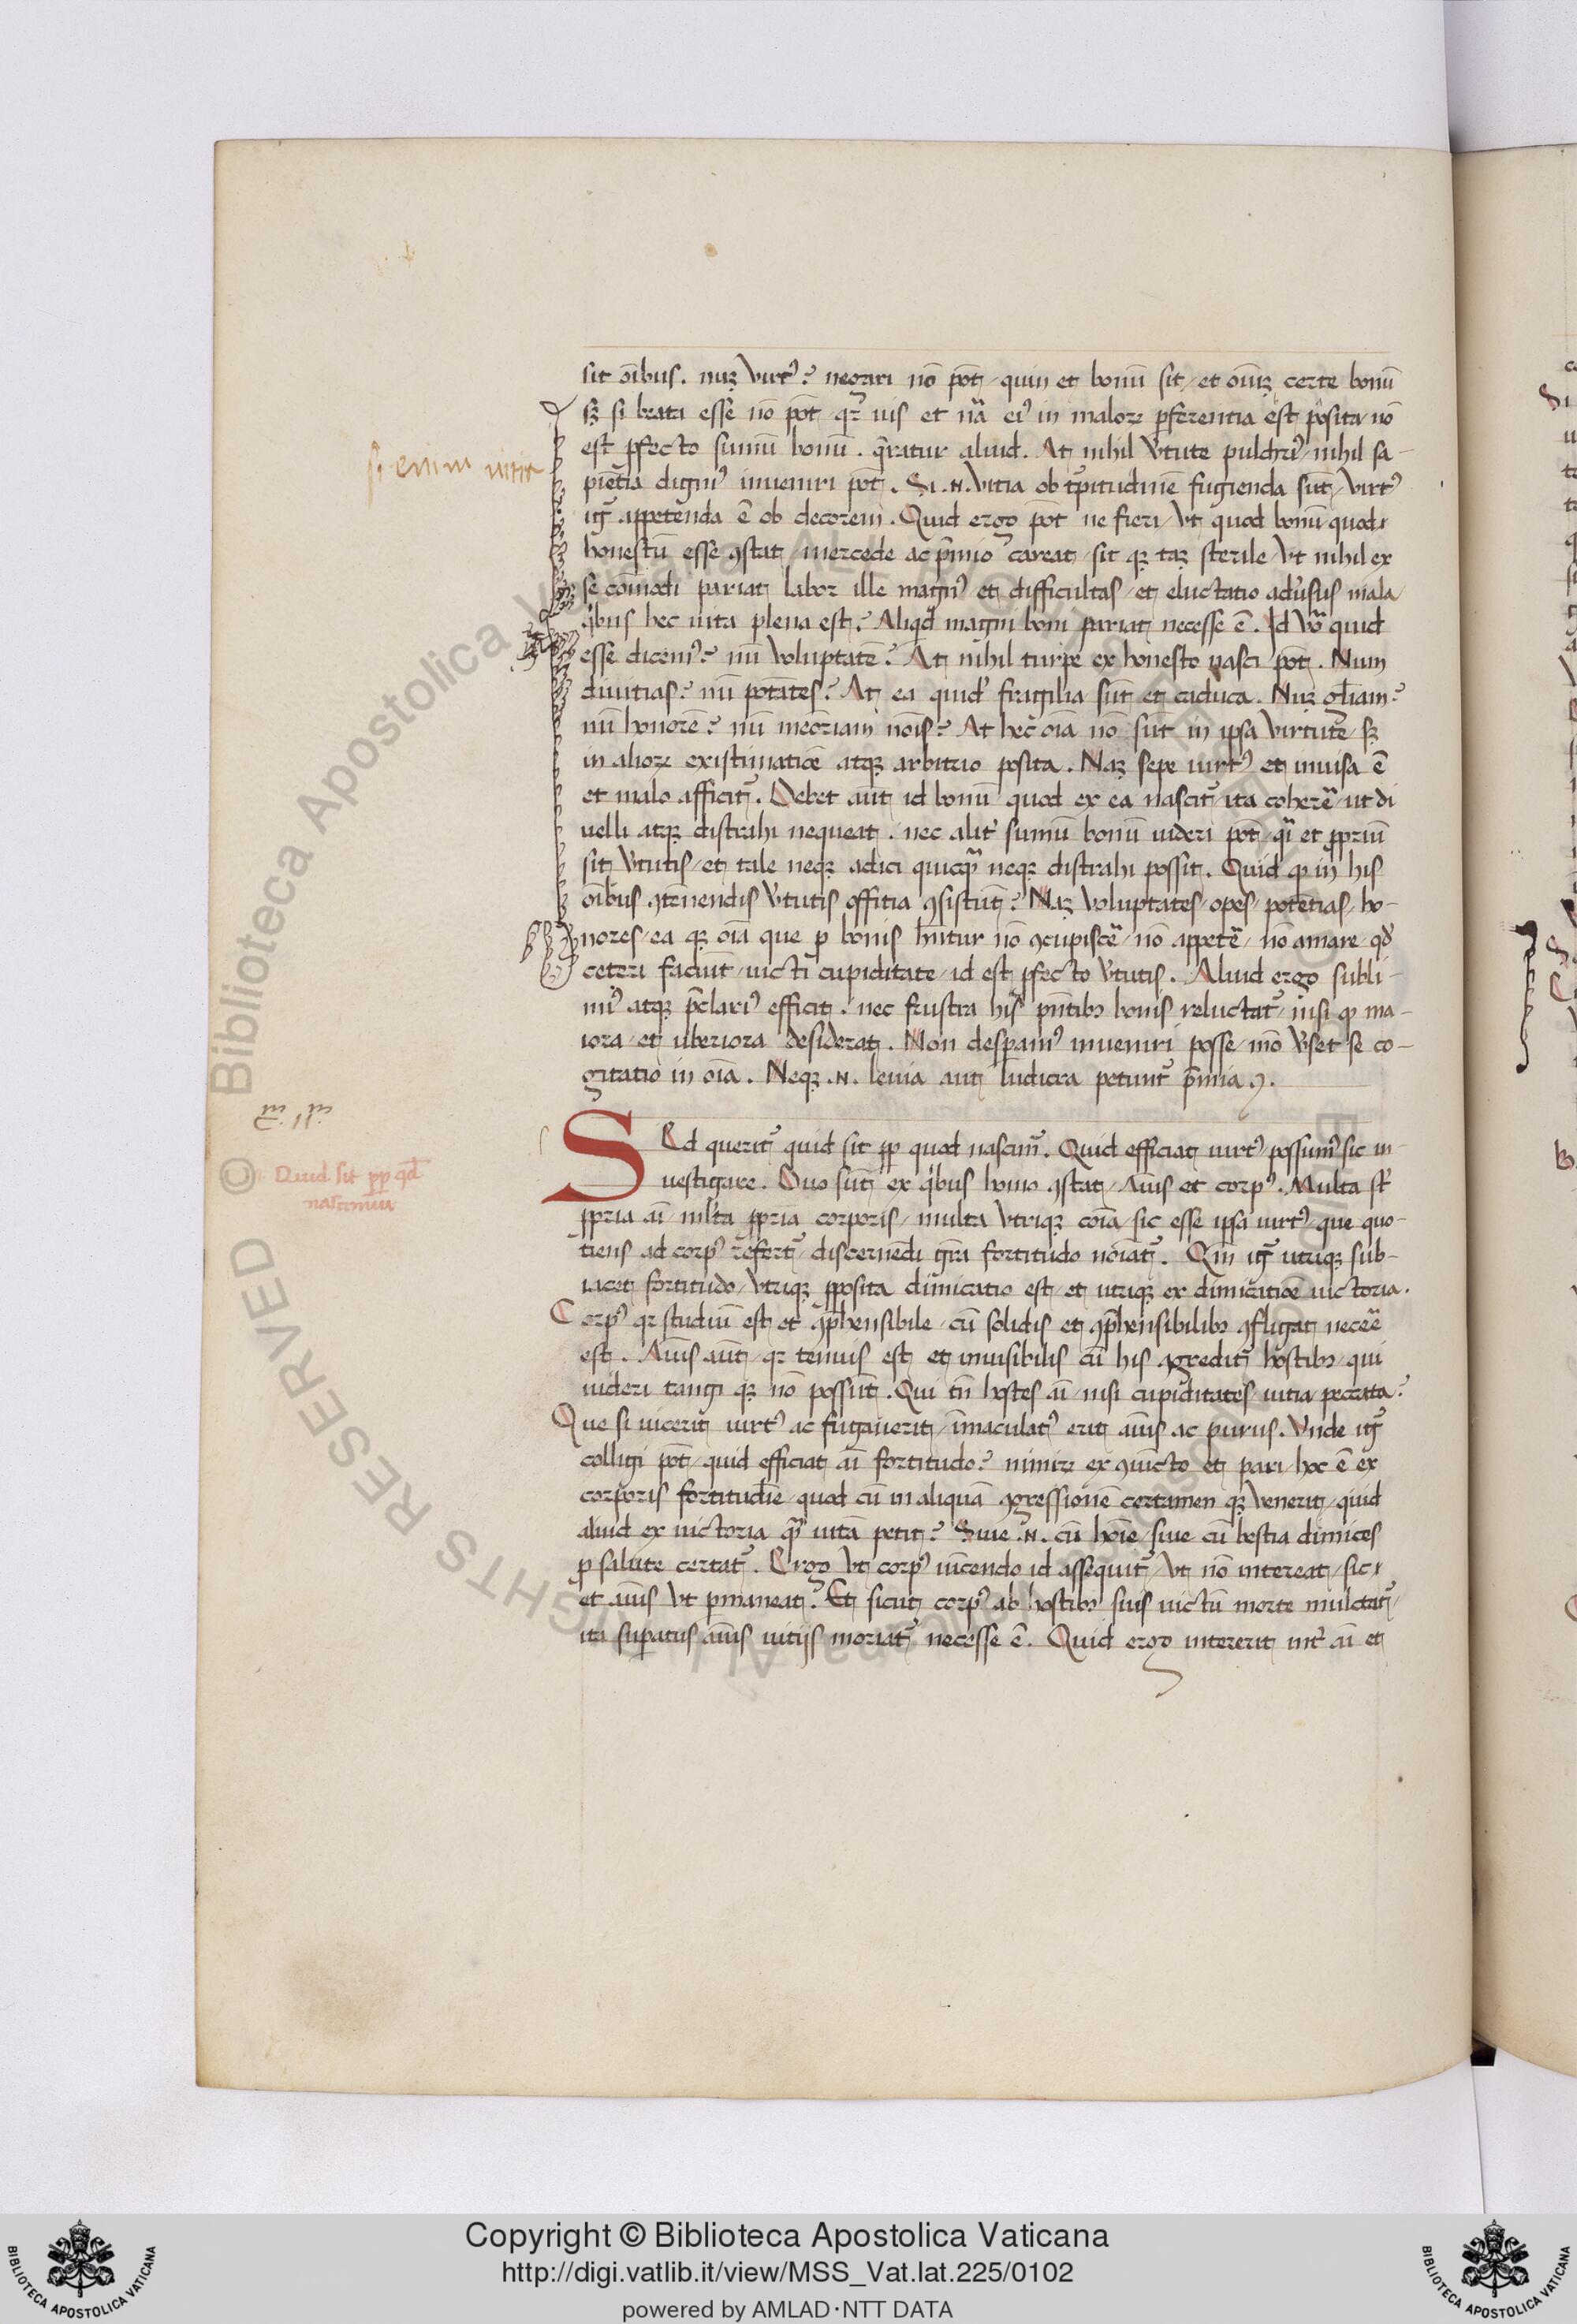 sit oībus. nuꝫ virtꝰ? negari nō pōt / quin et bonū sit / et oīuꝫ certe bonū
sꝫ si beati esse nō pōt / qꝛ uis et nā̃ eiꝰ in maloꝝ ꝑferentia est posita / nō
est ꝓfecto sumū bonū. q̄ratur aliud. At nihil v̓tute pulchriꝰ / nihil sa-
si enim uitia
piētia digniꝰ inueniri pōt. Si .n. vitia ob t̓pitudinē fugienda sūt / virtꝰ
ig̃ appetenda ē ob decorem. Quid ergo pōt ne fieri / vt quod bonū quod
honestū esse ꝯstat / mercede ac p̄mio careat / sit qꝫ taꝫ sterile / vt nihil ex
se cōmodi pariat labor ille magnꝰ et difficultas / et eluctatio adu̓sus mala
qͥbus hec uita plena est? Aliqͥd magni boni pariat necesse ē. Id vō quid
esse dicemꝰ? nū voluptatē? At nihil turpe ex honesto nasci pōt. Num
diuitias? nū potātes? At ea quid̓ fragilia sūt et caduca. Nuꝫ gl̄iam?
nū honorē? nū meōriam nōis? At hec oīa nō sūt in ipsa virtute / sꝫ
in alioꝝ existimatiōe atqꝫ arbitrio posita. Naꝫ sepe uirtꝰ et inuisa ē
et malo afficit᷑. Debet aūt id bonū quod ex ea nascit᷑ / ita coherē̃ / ut di
uelli atqꝫ distrahi nequeat. nec alit̓ sumū bonū uideri pōt / qͣ̄ et ꝓprium
sit v̓tutis / et tale neqꝫ adici quicqͣ̄ neqꝫ distrahi possit. Quid ꝙ in his
oībus ꝯtēnendis v̓tutis offitia ꝯsistūt? Naꝫ voluptates / opes / potentias / ho-
nores / ea qꝫ oīa que ꝓ bonis hn̄tur nō ꝯcupiscē̃ / nō appetē̃ / nō amare / qd̓
ceteri faciūt / uicti cupiditate / id est ꝓfecto v̓tutis. Aliud ergo subli-
miꝰ atqꝫ p̄clariꝰ efficit. nec frustra his pn̄tibꝫ bonis reluctat᷑ / nisi ꝙ ma-
iora / et uberiora desiderat. Non desperamꝰ inueniri posse / mō v̓set se co-
gitatio in oīa. Neqꝫ .n. leuia aut ludicra petunt᷑ p̄mia ꝰ.
Sed querit᷑ quid sit ꝓp quod nascim᷑. Quid efficiat uirtꝰ possumꝰ sic in-
Quid sit ꝓp qd̄
nascimur
uestigare. Duo sūt ex qͥbus homo ꝯstat / aīus et corpꝰ. Multa st̓
ꝓpria aī / ml̓ta ꝓpria corporis / multa vtriqꝫ cōia / sic esse ipsa uirtꝰ / que quo-
tiens ad corpꝰ refert᷑ / discernēdi gr̄a fortitudo noīat᷑. Qm̄ ig̃ utriqꝫ sub-
iacet fortitudo / vtriqꝫ ꝓposita dimicatio est / et utriqꝫ ex dimicatiōe uictoria.
Corpꝰ qꝛ studiū est et ꝯp̄hensibile / cū solidis et ꝯp̄hensibilibꝫ ꝯfligat necē̃e
est. Aīus aūt / qꝛ tenuis est et inuisibilis cū his ꝯgredit᷑ hostibꝫ / qui
uideri tangi qꝫ nō possūt. Qui tn̄ hostes aī / nisi cupiditates uitia peccata?
Que si uicerit uirtꝰ ac fugauerit / īmaculatꝰ erit aīus ac purus. Vnde ig̃
colligi pōt / quid efficiat aī fortitudo? nimiꝝ ex ꝯiūcto et pari / hoc ē ex
corporis fortitudīe / quod cū in aliquā ꝯgressionē certamen qꝫ venerit / quid
aliud ex uictoria qͣ̄ uitā petit? Siue .n. cū hoīe / siue cū bestia dimices
ꝓ salute certat᷑. Ergo vt corpꝰ uīcendo id assequit᷑ / vt nō intereat / sic
et aīus vt ꝑmaneat. Et sicut corpꝰ ab hostibꝫ suis uictū morte mulctat᷑ /
ita suꝑatus aīus uitijs moriat᷑ necesse ē. Quid ergo intererit int̓ aī et
Copyright © Biblioteca Apostolica Vaticana
http://digi.vatlib.it/view/MSS_Vat.lat.225/0102
powered by AMLAD·NTT DATA
BIBLIOTECA APOSTOLICA VATICANA
BIBLIOTECA APOSTOLICA VATICANA